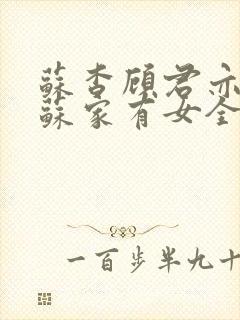 蘇杏顾君亦
蘇家有女全
一百步半九十